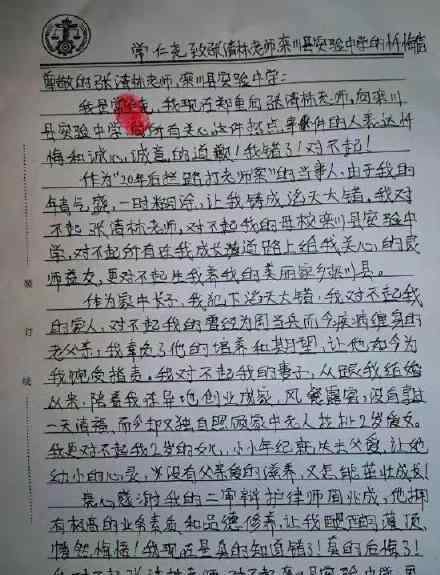 常仁尧致张清林老师,栾川县实验中学的忏悔信
尊敬的张清林老师,栾川县实验中学:
我是常仁尧,我现在郑重向张清林老师,向栾川
县实验中学 向所有关心这件 事件的人表达忏
悔和诚心诚意的道歉!我错了!对不起!
作为"20年后拦路打老师案"的当事人,由于我的
年青气盛,一时糊涂,让我铸成滔天大错,我对
不起张清林老师,对不起我的母校栾川县实验中
学,对不起所有在我成长道路上给我关心的良
师益友,更对不起生我养我的美丽家乡栾川县。
作为家中长子,我犯下滔天大错,我对不起我
的家人,对不起我的曾经为国当兵而今疾病缠身的
老父亲,我辜负了他的培养和期望,让他如今为
我饱受指责。我对不起我的妻子,从跟我结婚
以来,陪着我在异地创业成家,风餐露宿,没有享过
一天清福,而今却又独自照顾家中老人抚批2岁爱女。
我更对不起我2岁的女儿,小小年纪就失去父爱,让她
幼小的心灵,少没有父亲爱的滋养,又怎能茁壮成长!
衷心感谢我的二审辩护律师周兆成,他拥
有极高的业务素质和品德修养,让我醍醐灌顶,
幡然悔悟!我现在是真的知道错了!真的后悔了!
装
订
线